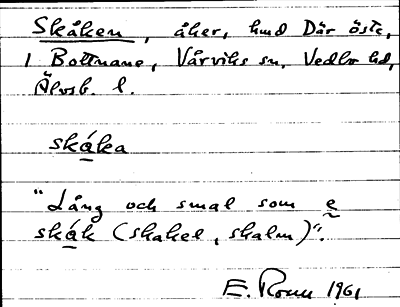 Skåken, åker, hmd Där öste,
1 Bottnane, Vårviks sn, Vedbo hd,
Älvsb. l.
skåka
"Lång och smal som e
skåk (skakel, skalm)".
E. Ronn 1961